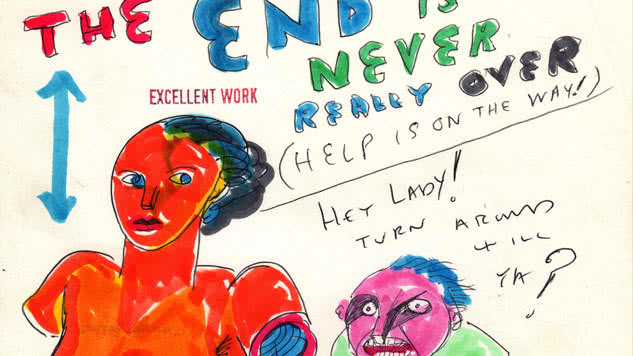 THE END IS
NEVER
REALLY OVER
EXCELLENT WORK
(HELP IS ON THE WAY!)
HEY LADY!
TURN AROUND
WILL
YA?